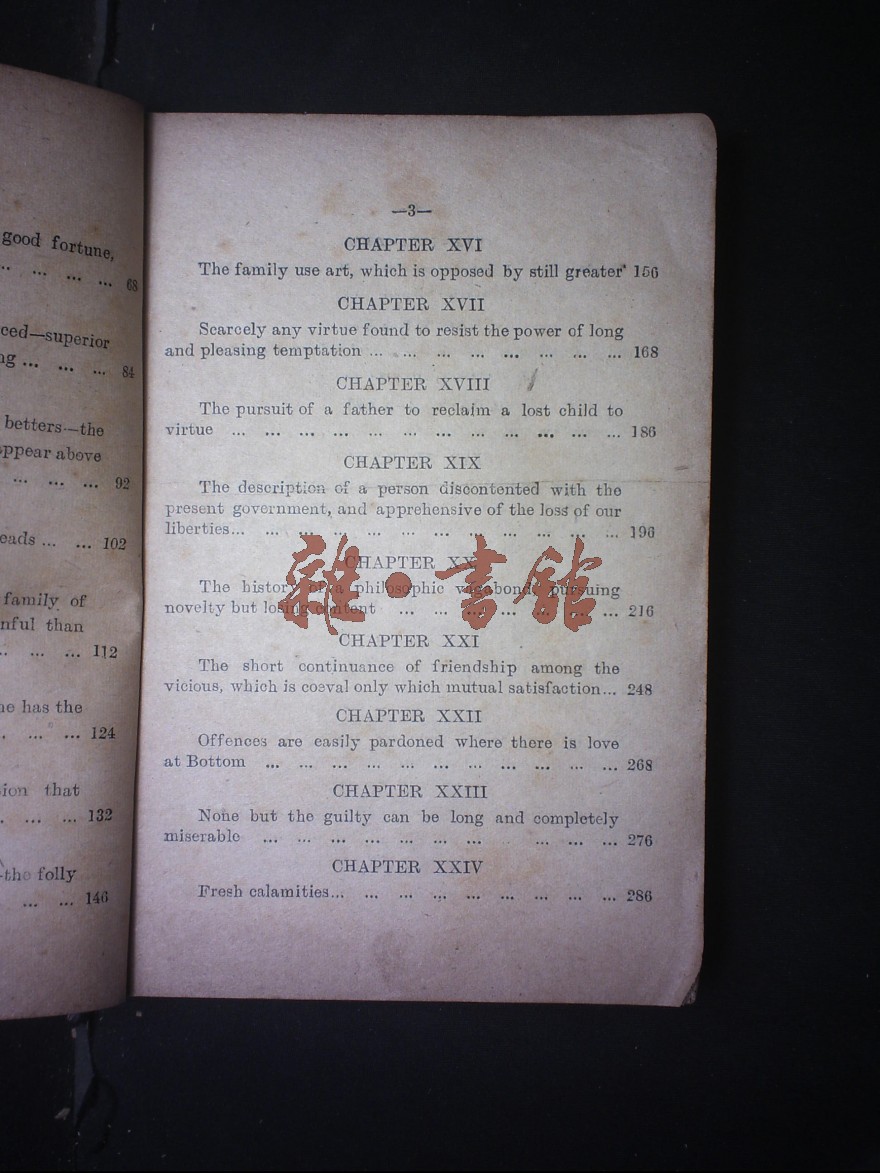 good fortune,
.. ... ... ... 68
ced—superior
ng ... ... ... 84
betters—the
ppear above
... ... ... 92
eads ... ... 102
family of
nful than
.. ... ... 112
ne has the
. ... ... 124
ion that
. ... ... 132
-the folly
... ... 146
—3—
CHAPTER XVI
The family use art, which is opposed by still greater 156
CHAPTER XVII
Scarcely any virtue found to resist the power of long
and pleasing temptation ... ... ... ... ... ... ... ... 168
CHAPTER XVIII
The pursuit of a father to reclaim a lost child to
virtue ... ... ... ... ... ... ... ... ... ... ... ... 186
CHAPTER XIX
The description of a person discontented with the
present government, and apprehensive of the loss of our
liberties... ... ... ... ... ... ... ... ... ... ... ... 196
CHAPTER XX
The history of a philosophic vagabond, pursuing
novelty but losing content ... ... ... ... ... ... ... 216
CHAPTER XXI
The short continuance of friendship among the
vicious, which is coeval only which mutual satisfaction... 248
CHAPTER XXII
Offences are easily pardoned where there is love
at Bottom ... ... ... ... ... ... ... ... ... ... ... 268
CHAPTER XXIII
None but the guilty can be long and completely
miserable ... ... ... ... ... ... ... ... ... ... 276
CHAPTER XXIV
Fresh calamities... ... ... ... ... ... ... ... ... 286
雜·書館